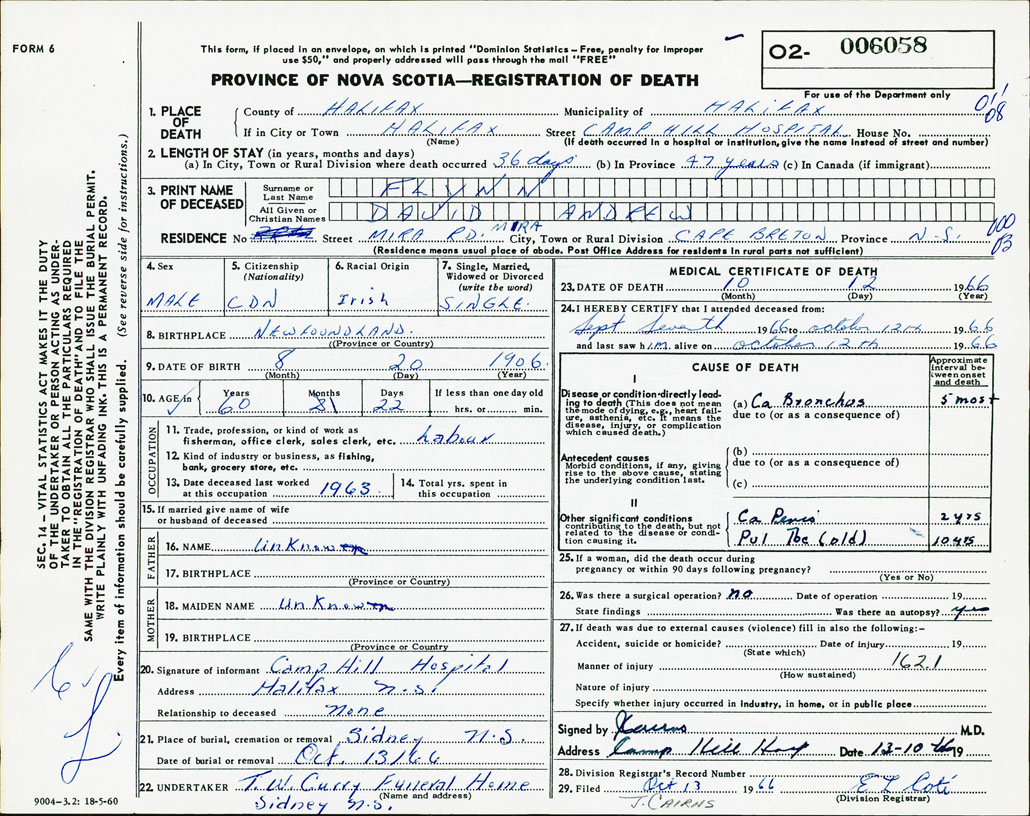 FORM 6
This form, if placed in an envelope, on which is printed "Dominion Statistics – Free, penalty for improper
use $50," and properly addressed will pass through the mail "FREE"
PROVINCE OF NOVA SCOTIA—REGISTRATION OF DEATH
O2- 006058
For use of the Department only
1. PLACE OF DEATH
County of HALIFAX Municipality of HALIFAX
If in City or Town HALIFAX Street CAMP HILL HOSPITAL House No.
(Name) (If death occurred in a hospital or institution, give the name instead of street and number)
2. LENGTH OF STAY (in years, months and days)
(a) In City, Town or Rural Division where death occurred 36 days (b) In Province 47 years (c) In Canada (if immigrant)
3. PRINT NAME OF DECEASED
Surname or Last Name FLYNN
All Given or Christian Names DAVID ANDREW
RESIDENCE No Street MIRA RD. MIRA City, Town or Rural Division CAPE BRETON Province N.S.
(Residence means usual place of abode. Post Office Address for residents in rural parts not sufficient)
4. Sex MALE
5. Citizenship (Nationality) CDN
6. Racial Origin Irish
7. Single, Married, Widowed or Divorced (write the word) SINGLE.
8. BIRTHPLACE NEWFOUNDLAND.
(Province or Country)
9. DATE OF BIRTH 8 20 1906
(Month) (Day) (Year)
10. AGE in Years Months Days If less than one day old
60 22 hrs. or min.
OCCUPATION
11. Trade, profession, or kind of work as
fisherman, office clerk, sales clerk, etc. Labour
12. Kind of industry or business, as fishing,
bank, grocery store, etc.
13. Date deceased last worked at this occupation 1963
14. Total yrs. spent in this occupation
15. If married give name of wife
or husband of deceased
FATHER
16. NAME UnKnown
17. BIRTHPLACE
(Province or Country)
MOTHER
18. MAIDEN NAME UnKnown
19. BIRTHPLACE
(Province or Country)
20. Signature of informant Camp Hill Hospital
Address Halifax N.S.
Relationship to deceased None
21. Place of burial, cremation or removal Sidney N.S.
Date of burial or removal Oct. 13/66
22. UNDERTAKER T.W. Curry Funeral Home
(Name and address)
Sidney N.S.
9004–3.2: 18-5-60
MEDICAL CERTIFICATE OF DEATH
23. DATE OF DEATH 10 12 1966
(Month) (Day) (Year)
24. I HEREBY CERTIFY that I attended deceased from:
Sept Seventh 1966 to october 12th 1966
and last saw him alive on october 12th 1966
CAUSE OF DEATH
Approximate interval between onset and death
I
Disease or condition directly leading to death (This does not mean the mode of dying, e.g., heart failure, asthenia, etc. It means the disease, injury, or complication which caused death.)
(a) Ca Bronchus 5 mos +
due to (or as a consequence of)
Antecedent causes
Morbid conditions, if any, giving rise to the above cause, stating the underlying condition last.
(b)
due to (or as a consequence of)
(c)
II
Other significant conditions contributing to the death, but not related to the disease or condition causing it.
Ca Penis 2 yrs
Pul Tbc (old) 10 yrs
25. If a woman, did the death occur during
pregnancy or within 90 days following pregnancy?
(Yes or No)
26. Was there a surgical operation? no Date of operation 19
State findings Was there an autopsy? yes
27. If death was due to external causes (violence) fill in also the following:–
Accident, suicide or homicide? Date of injury 19
(State which)
Manner of injury 162.1
(How sustained)
Nature of injury
Specify whether injury occurred in industry, in home, or in public place
Signed by M.D.
Address Camp Hill Hosp Date 13-10 19
28. Division Registrar's Record Number
29. Filed Oct 13 1966 E L Coté
(Division Registrar)
J. CAIRNS
SEC. 14 – VITAL STATISTICS ACT MAKES IT THE DUTY
OF THE UNDERTAKER OR PERSON ACTING AS UNDER-
TAKER TO OBTAIN ALL THE PARTICULARS REQUIRED
IN THE "REGISTRATION OF DEATH" AND TO FILE THE
SAME WITH THE DIVISION REGISTRAR WHO SHALL ISSUE THE BURIAL PERMIT.
WRITE PLAINLY WITH UNFADING INK. THIS IS A PERMANENT RECORD.
Every item of information should be carefully supplied. (See reverse side for instructions.)